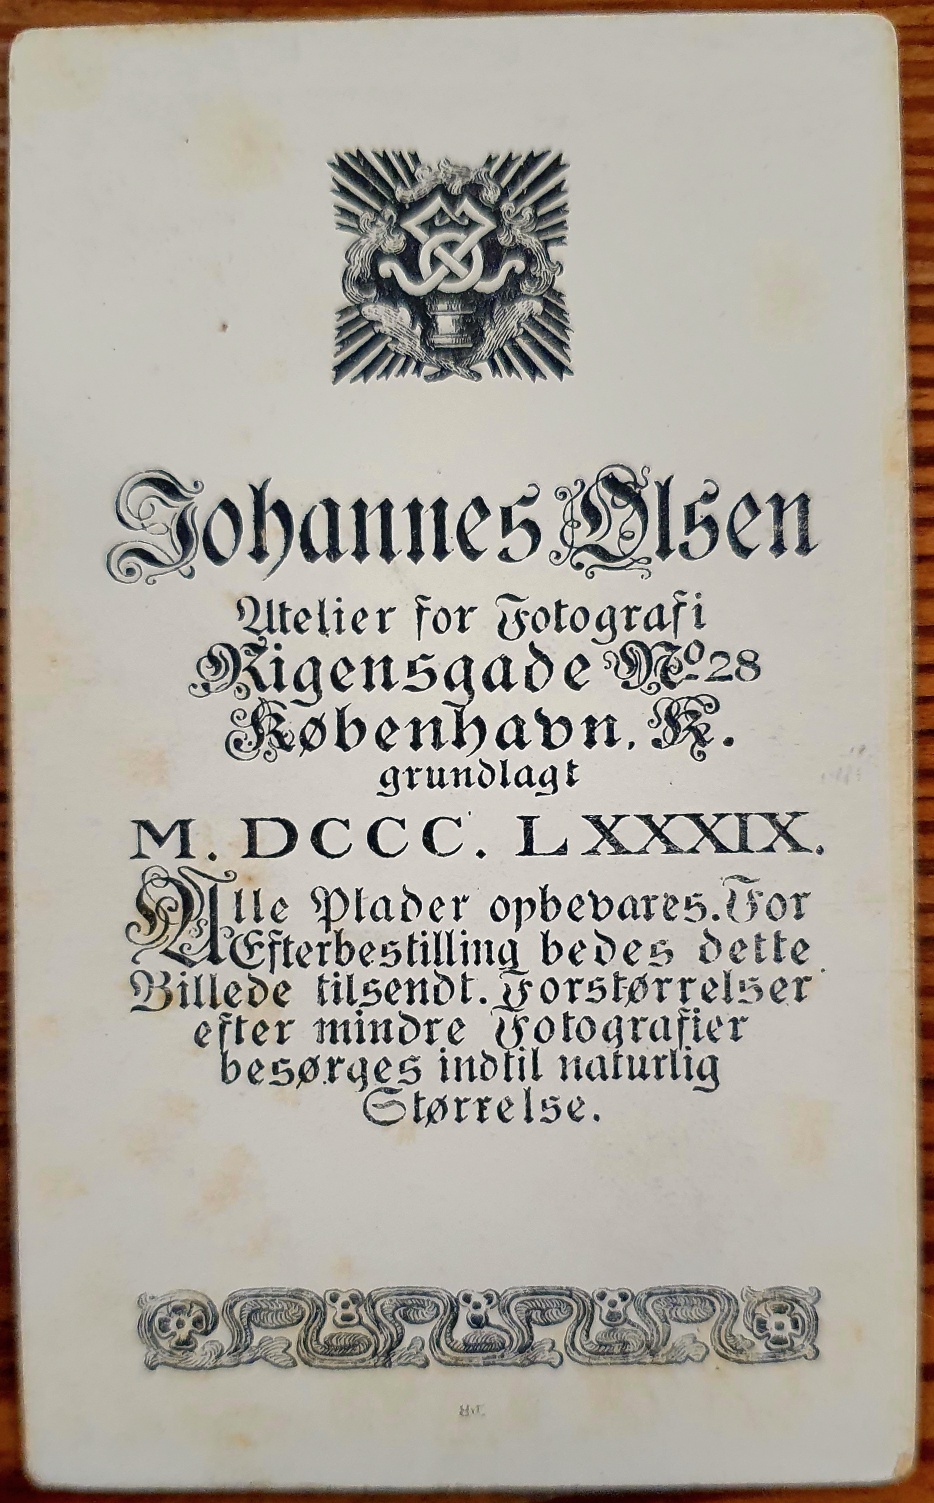 Johannes Olsen
Atelier for Fotografi
Rigensgade No. 28
København. K.
grundlagt
M. DCCC. LXXXIX.
Alle Plader opbevares. For
Efterbestilling bedes dette
Billede tilsendt. Forstørrelser
efter mindre Fotografier
besørges indtil naturlig
Størrelse.